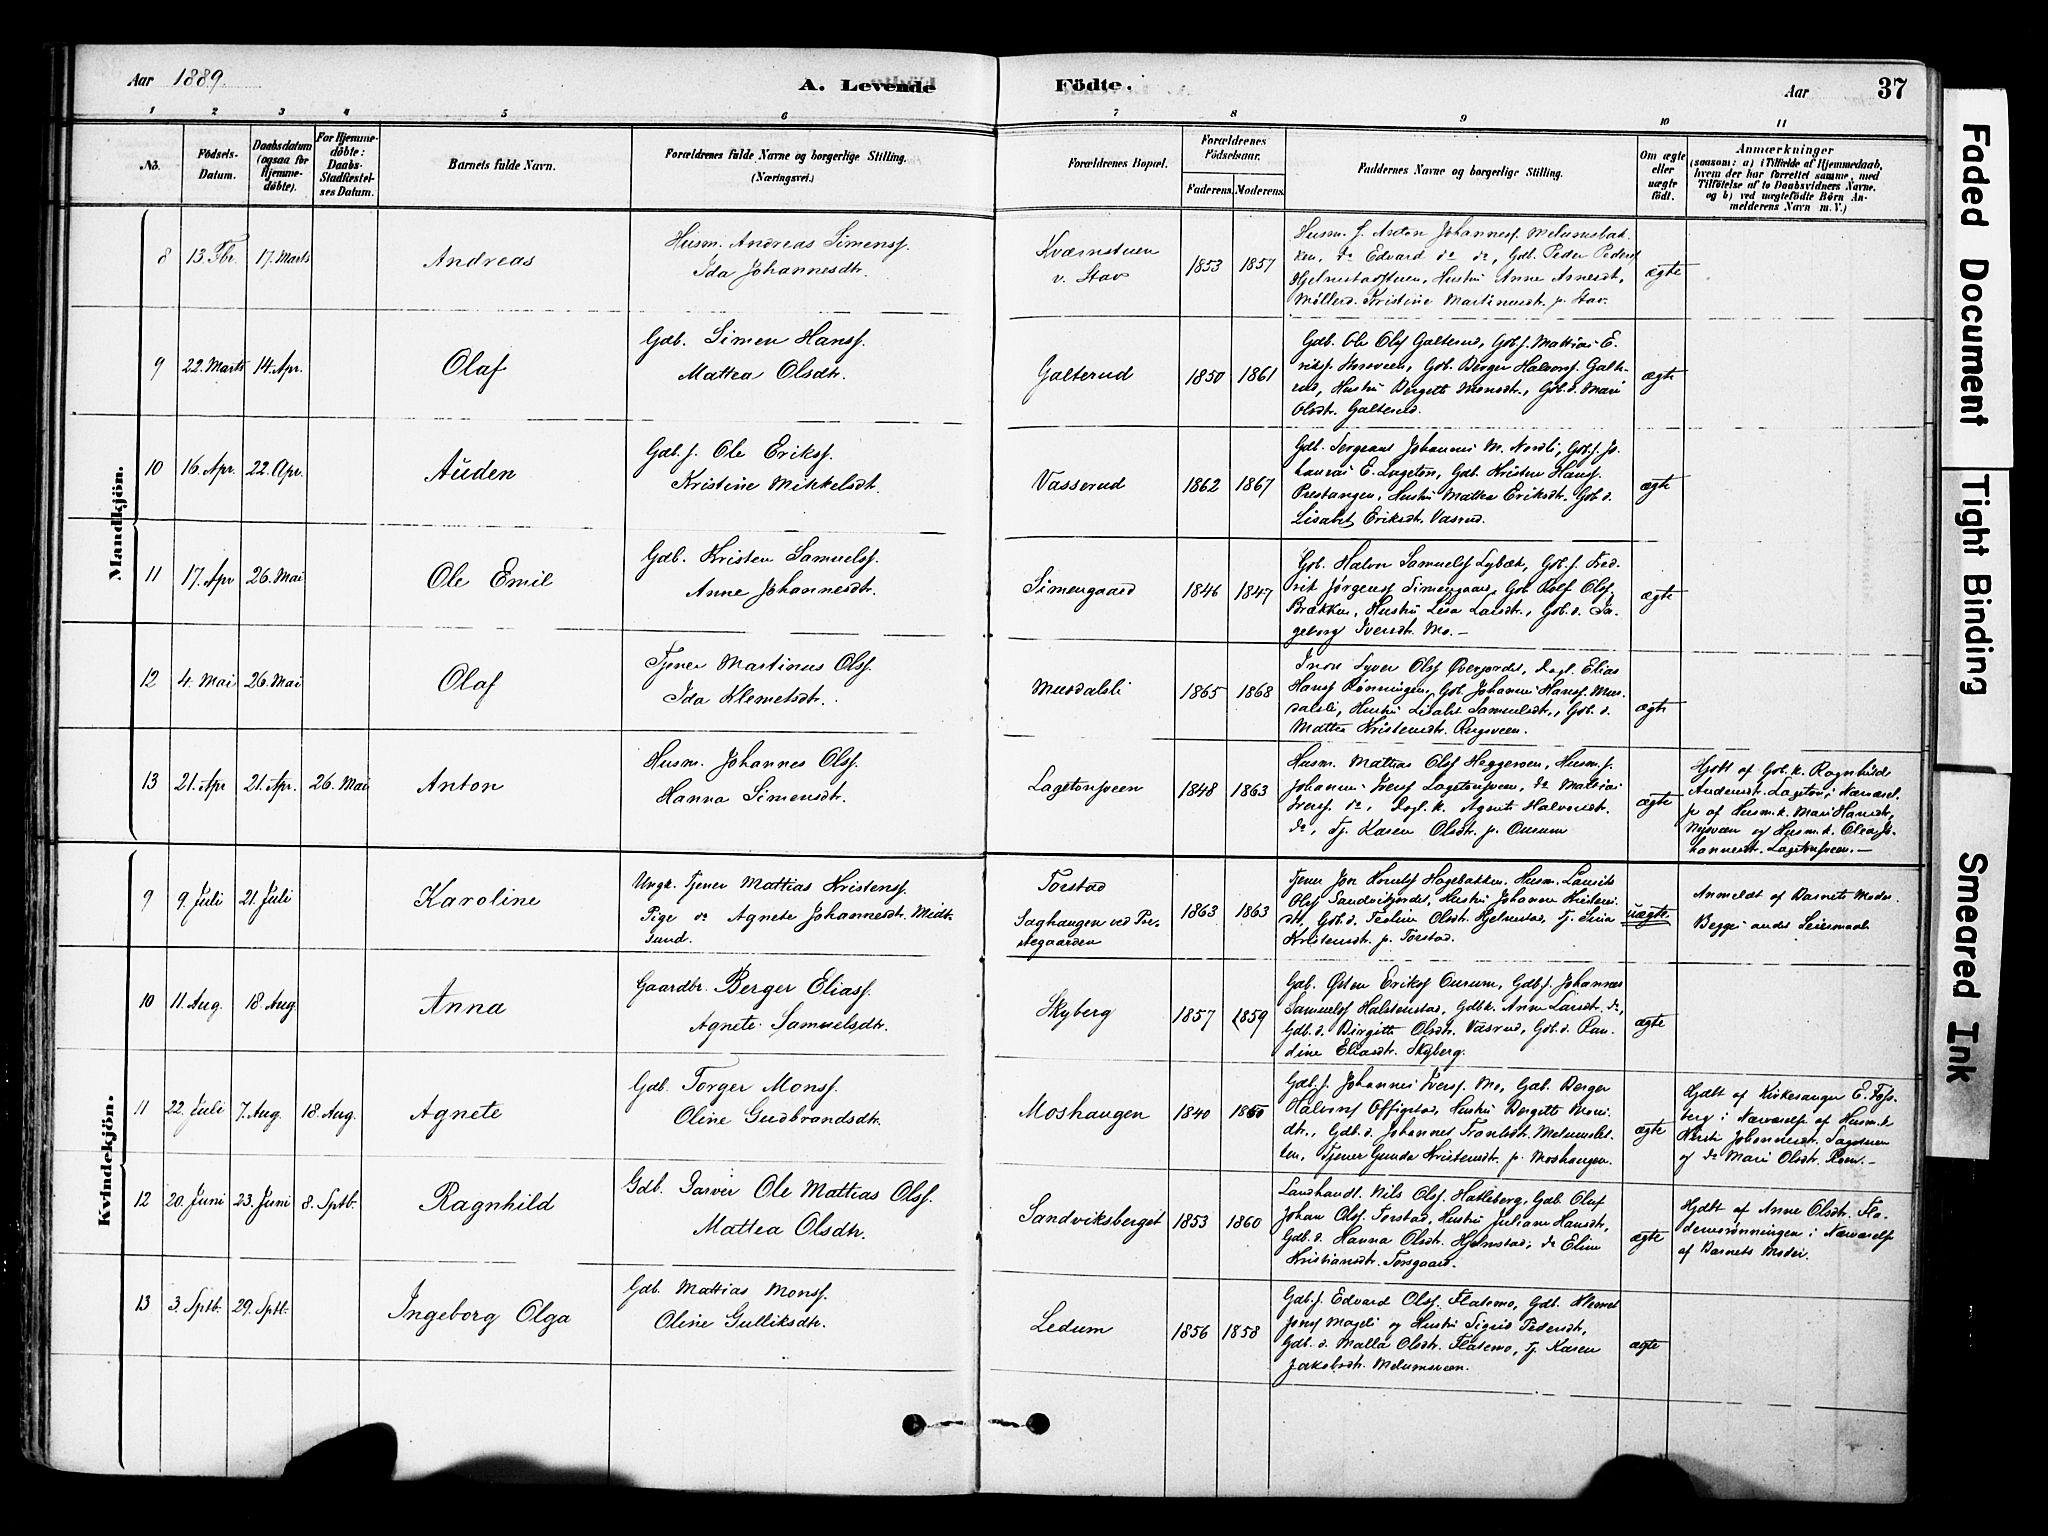 Aar 1889.
A. Levende
Födte.
Aar
37
1 2 3 4 5 6 7 8 9 10 11
No.
Födsels-Datum.
Daabsdatum (ogsaa for Hjemmedöbte).
For Hjemmedöbte: Daabs-Stadfæstelses Datum.
Barnets fulde Navn.
Forældrenes fulde Navne og borgerlige Stilling. (Næringsvei.)
Forældrenes Bopæl.
Forældrenes Födselsaar.
Faderens. Moderens.
Faddernes Navne og borgerlige Stilling.
Om ægte eller uægte födt.
Anmærkninger
(saasom: a) i Tilfælde af Hjemmedaab, hvem der har forrettet samme, med Tilföielse af to Daabsvidners Navne. og b) ved uegtefödte Börn Anmelderens Navn m. V.)
Mandkjön.
8 13. Fbr. 17. Marts Andreas
Husm. Andreas Simensf.
Ida Johannesdtr.
Kværnstuen
v. Stav
1853 1857
Husm. f. Anton Johannesf. Melumsbak-
ken, do Edvard do do, Gdb. Peder Pedersf
Hjelmstadstuen, Hustru Anne Arnesdt,
Möllerd. Kristine Martinusdt. p. Stav.
ægte
9 22. Marts 14. Apr. Olaf
Gdb. Simen Hansf.
Mattea Olsdtr.
Galterud
1850 1861
Gdb. Ole Olsf Galterud, Gdb.f. Mattias E-
riksf., Gdb. Berger Halvorsf. Galte-
rud, Hustru Bergitte Monsdtr., Gdb.d. Mari
Olsdtr. Galterud.
ægte
10 16. Apr. 22. Apr. Auden
Gdb. f. Ole Eriksf.
Kristine Mikkelsdt.
Vasserud
1862 1867
Gdb. Sergeant Johannes M. Nordli, Gdb.f. Jo-
hannes E. Lageton, Gdb. Kristen Hansf.
Prestangen, Hustru Mattea Eriksdt. Gdb.d.
Lisabet Eriksdt. Vasrud.
ægte
11 17. Apr 26. Mai Ole Emil
Gdb. Kristen Samuelsf.
Anne Johannesdtr.
Simengaard
1846 1847
Gdb. Halvor Samuelsf Lybæk, Gdb.f. Fred-
rik Jörgensf Simengaard, Gdb. Rolf Olsf.
Brækken, Hustru Lisa Larsdt., Gdb.d. In-
geborg Iversdt. Mo.–
ægte
12 4. Mai 26. Mai Olaf
Tjener Martinus Olsf.
Ida Klemetsdtr.
Musdalsli
1865 1868
Syver Olsf Överjordet, Dagl. Elias
Hansf Rönningen, Gdb. Johannes Hansf. Mus-
dalsli, Hustru Lisabet Samuelsdt., Gdb. d.
Mattea Kristensdt.
ægte
13 21. Apr 21. Apr. 26. Mai Anton
Husm. Johannes Olsf.
Hanna Simensdt.
Lagetonsveen
1848 1863
Husm. Mattias Olsf Haggeroen, Husm.f.
Johannes Iversf Lagetonsveen, do Mattias
Iversf. do, Dagl.k. Agnete Halvorsdt.
do, Tj. Karen Olsdt. p. Ourum
ægte
Hjdbt af Gdb.k. Ragnhild
Andersdt. Lageton i Nærværel-
se af Husm.k. Mari Hansdt,
Nysveen og Husm.k. Olea Jo-
hannesdt. Lagetonsveen.–
Kvindekjön.
9 9. Juli 21. Juli Karoline
Ungk. Tjener Mattias Kristensf.
Pige do Agnete Johannesdt. Midt-
sund.
Torstad
Saghaugen ved Præ-
stegaarden
1863 1863
Tjener Jon Hagebakken, Husm. Laurits
Olsf Sandviksjordet, Hustru Johanne Kristens-
dt, Gdb.d. Teoline Olsdt. Hjelmstad, Tj. Sina
Kristensdt. p. Torstad.
uægte
Anmeldt af Barnets Moder.
Begges andet Leiermaal.
10 11. Aug. 18. Aug. Anna
Gaardbr. Berger Eliasf.
Agnete Samuelsdtr.
Skyberg
1857 1859
Gdb. Östen Eriksf Ourum, Gdb.f. Johannes
Samuelsf Halstenstad, Gdbk. Anne Larsdt. do,
Gdb.d. Birgitte Olsdt. Vasrud, Gdb.d. Ran-
dine Eliasdt. Skyberg.
ægte
11 22. Juli 7. Aug. 18. Aug. Agnete
Gdb. Torger Monsf.
Oline Gudbrandsdtr.
Moshaugen
1840 1850
Gdb.f. Johannes Iversf. Mo, Gdb. Berger
Halvorsf Offigstad, Hustru Bergitte Mons-
dtr., Gdb.d. Johanne Frantsdt. Melumslet-
ten, Tjener Gunda Kristensdt. p. Moshaugen.
ægte
Hjdbt af Kirkesanger E. Fos-
berg i Nærværelse af Husm.k
Kirsti Johannesdt.
og do Mari Olsdt. Roen.–
12 20. Juni 23. Juni 8. Sptb. Ragnhild
Gdb. Garver Ole Mattias Olsf.
Mattea Olsdtr.
Sandviksberget
1853 1860
Landhandl. Nils Olsf. Hatleberg, Gdb. Oluf
Johan Olsf. Torstad, Hustru Juliane Hansdt,
Gdb.d. Hanna Olsdt. Hjelmstad, do Eline
Kristiansdt. Torsgaard.
ægte
Hjdbt af Anne Olsdt. Fla-
demorönningen i Nærværelse
af Barnets Moder.
13 3. Sptb. 29. Sptb. Ingeborg Olga
Gdb. Mattias Monsf.
Oline Gulliksdtr.
Ledum
1856 1858
Gdb.f. Edvard Olsf. Flatemo, Gdb. Klemet
Jonsf Mageli og Hustru Sigrid Pedersdt,
Gdb.d. Malla Olsdt. Flatemo, Tj. Karen
Jakobsdt. Melumsveen.
ægte
Faded Document
Tight Binding
Smeared Ink